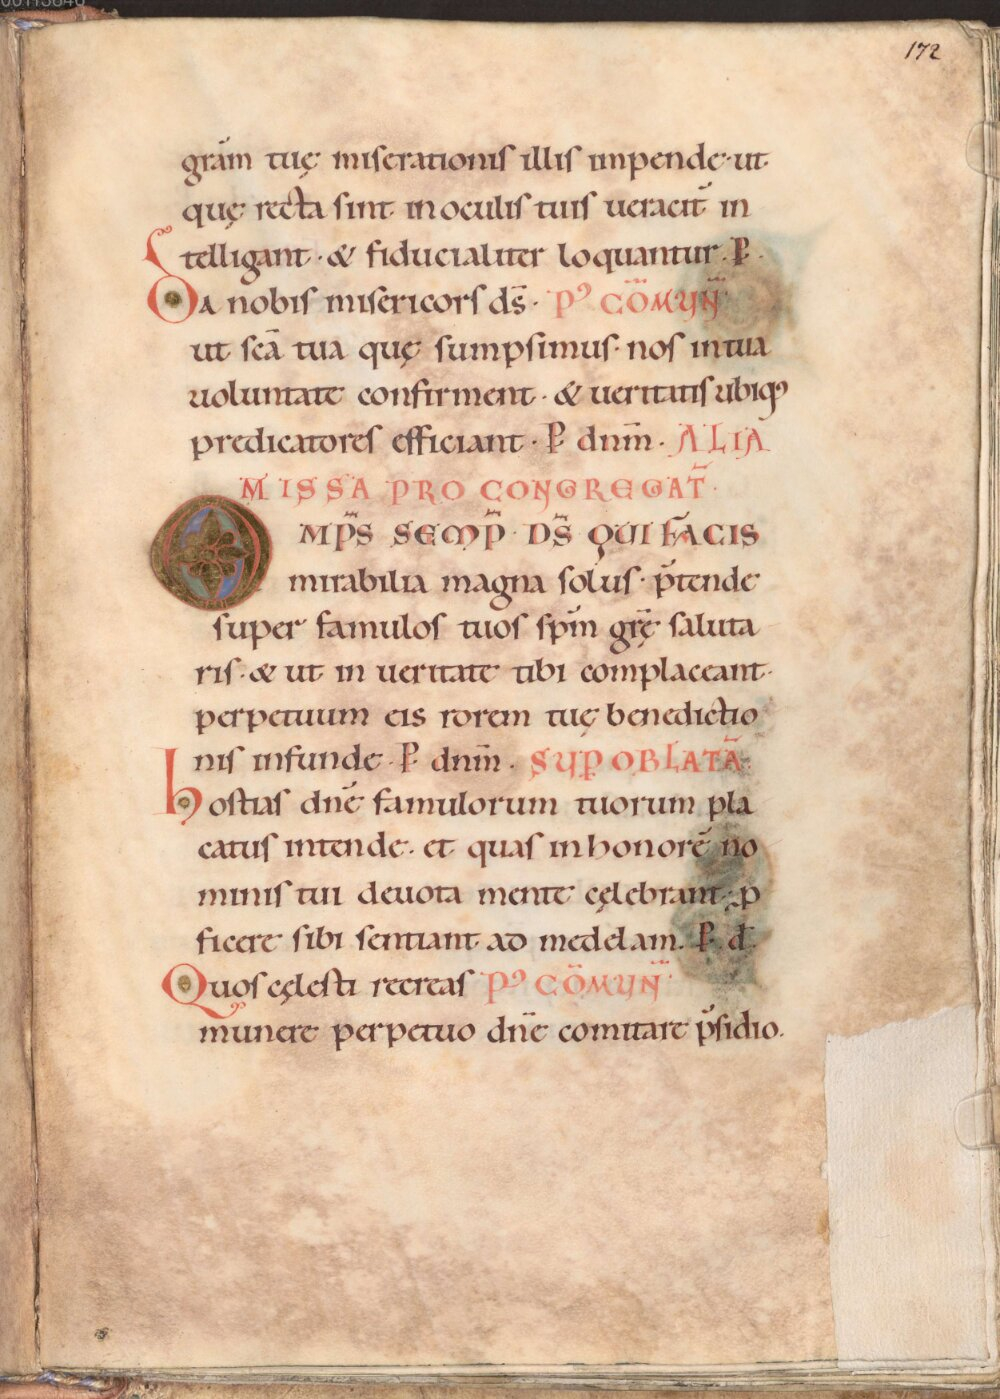 172
grām tuę miserationis illis impende· ut
quę recta sint in oculis tuis ueracit̄ in
telligant· & fiducialiter loquantur. P̱.
Da nobis misericors d̄s· Pꝰ CŌMVN̄
ut scā tua quę sumpsimus· nos in tua
uoluntate confirment· & ueritatis ubiqꝫ
predicatores efficiant· P̱ dnm̄· ALIA
MISSA PRO CONGREGAT̄·
OMP̄S SEMP̄ D̄S QUI FACIS
mirabilia magna solus· p̄tende
super famulos tuos spm̄ grę̄ saluta
ris· & ut in ueritate tibi complaceant·
perpetuum eis rorem tuę benedictio
nis infunde· P̱ dnm̄. SUP OBLATĀ
hostias dnē famulorum tuorum pla
catus intende· et quas in honorē no
minis tui deuota mente cęlebrant· ꝓ
ficere sibi sentiant ad medelam. P̱. d.
Quos cęlesti recreas Pꝰ CŌMVN̄
munere perpetuo dnē comitare p̄sidio.